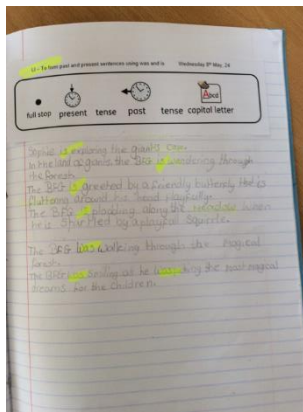 LI - To form past and present sentences using was and is Wednesday 8th May, 24
Abcd
full stop present tense past tense capital letter
Sophie is exploring the giants cave.
In the land of giants the BFG is wandering through
the forest.
The BFG is greeted by a friendly butterfly that is
fluttering around his head playfully.
The BFG is plodding along the meadow when
he is startled by a playful squirrel.
The BFG was walking through the magical
forest.
The BFG was smiling as he was the most magical
dreams for the children.